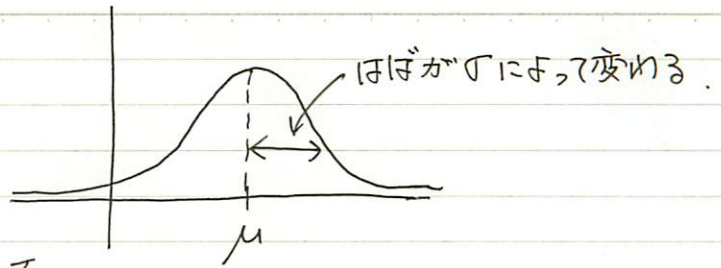 はばがσによって変わる.
μ